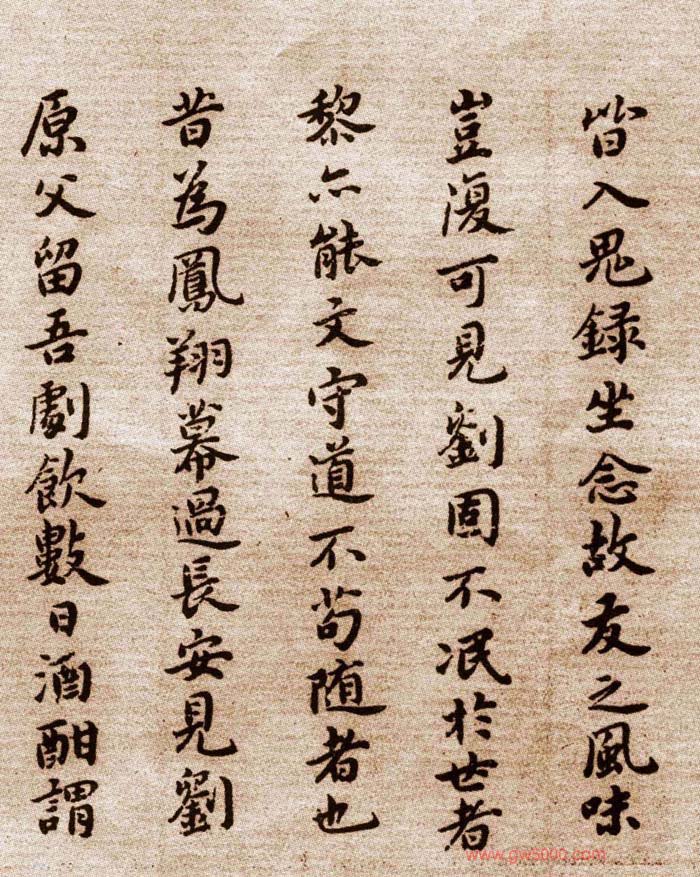 皆入鬼錄坐念故友之風味
豈復可見劉固不泯於世者
黎亦能文守道不苟隨者也
昔為鳳翔幕過長安見劉
原父留吾劇飲數日酒酣謂
www.gw5000.com